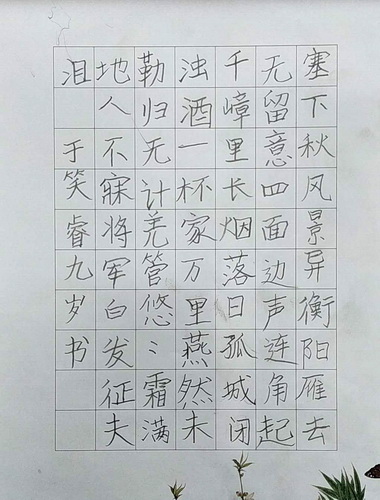 塞下秋风景异衡阳雁去
无留意四面边声连角起
千嶂里长烟落日孤城闭
浊酒一杯家万里燕然未
勒归无计羌管悠〻霜满
地人不寐将军白发征夫
泪 于笑睿九岁书